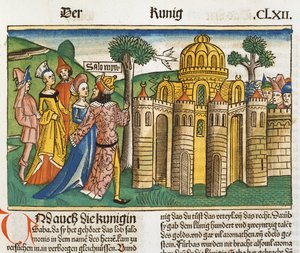 Der Kunig CLXII.
Salomon
UNd auch die kunigin
Saba, da sy het gehöret das lob salo
monis in dem namē des herrē. kam zu
versuchen in in verborgen
nig das du das vnd das recht. 
sy gab dem kunig hundert vnd zweyntzig talent
des golds. vnd gar vil aromathen. vn edels ge
steins. Fürbas wurden nit bracht alsouil aroma